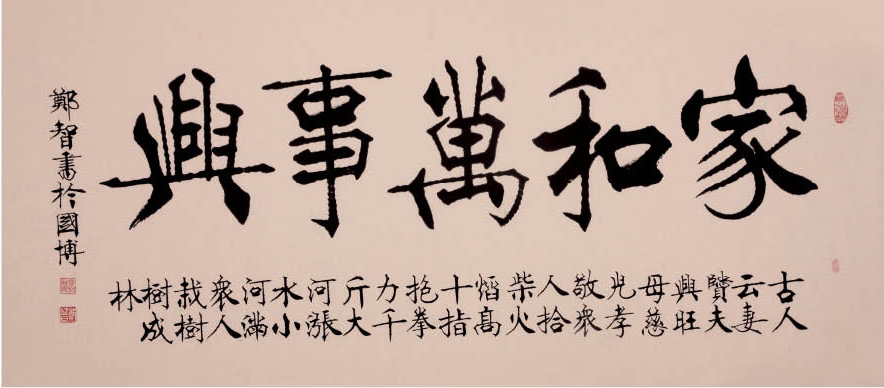 家和萬事興
古人
云妻
賢夫
興旺
母慈
児孝
敬衆
人拾
柴火
熖高
十指
抱拳
力千
斤大
河漲
水小
河滿
衆人
栽樹
樹成
林
鄭智書於國博